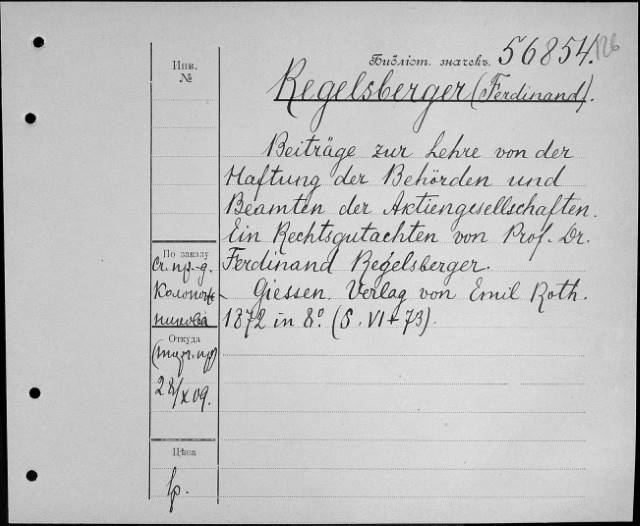 Инв.
№
Библіот. значекъ. 56854. 126
Regelsberger (Ferdinand).
Beiträge zur Lehre von der
Haftung der Behörden und
Beamten der Aktiengesellschaften.
Ein Rechtsgutachten von Prof. Dr.
Ferdinand Regelsberger.
Giessen. Verlag von Emil Roth.
1872 in 8º. (S. VI + 73).
По заказу
Ст. пр.-д.
Колоноч-
никова
Откуда
28/X 09.
Цѣна